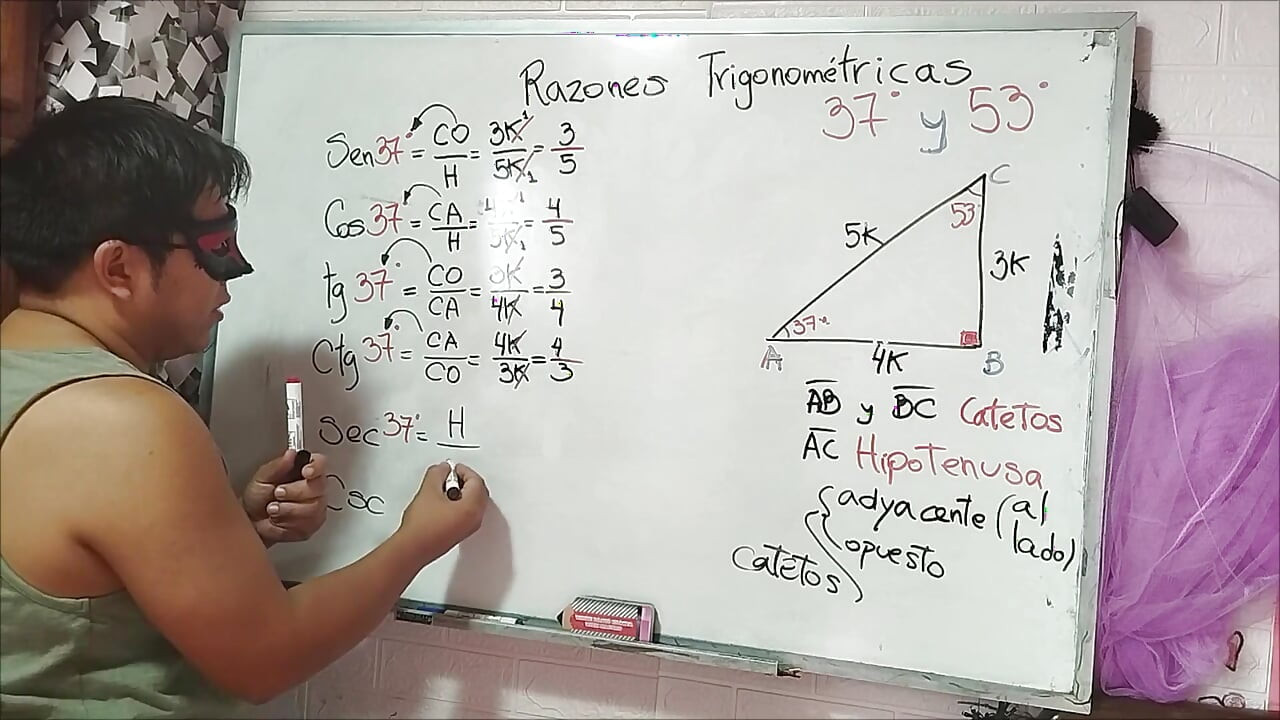 Razones Trigonométricas
37° y 53°
Sen37° = CO/H = 3K/5K = 3/5
Cos 37° = CA/H = 4K/5K = 4/5
tg 37° = CO/CA = 3K/4K = 3/4
Ctg 37° = CA/CO = 4K/3K = 4/3
Sec 37° = H
Csc
C
53
5K
3K
37°
A
4K
B
AB y BC Catetos
AC Hipotenusa
Catetos { adyacente (al lado)
opuesto